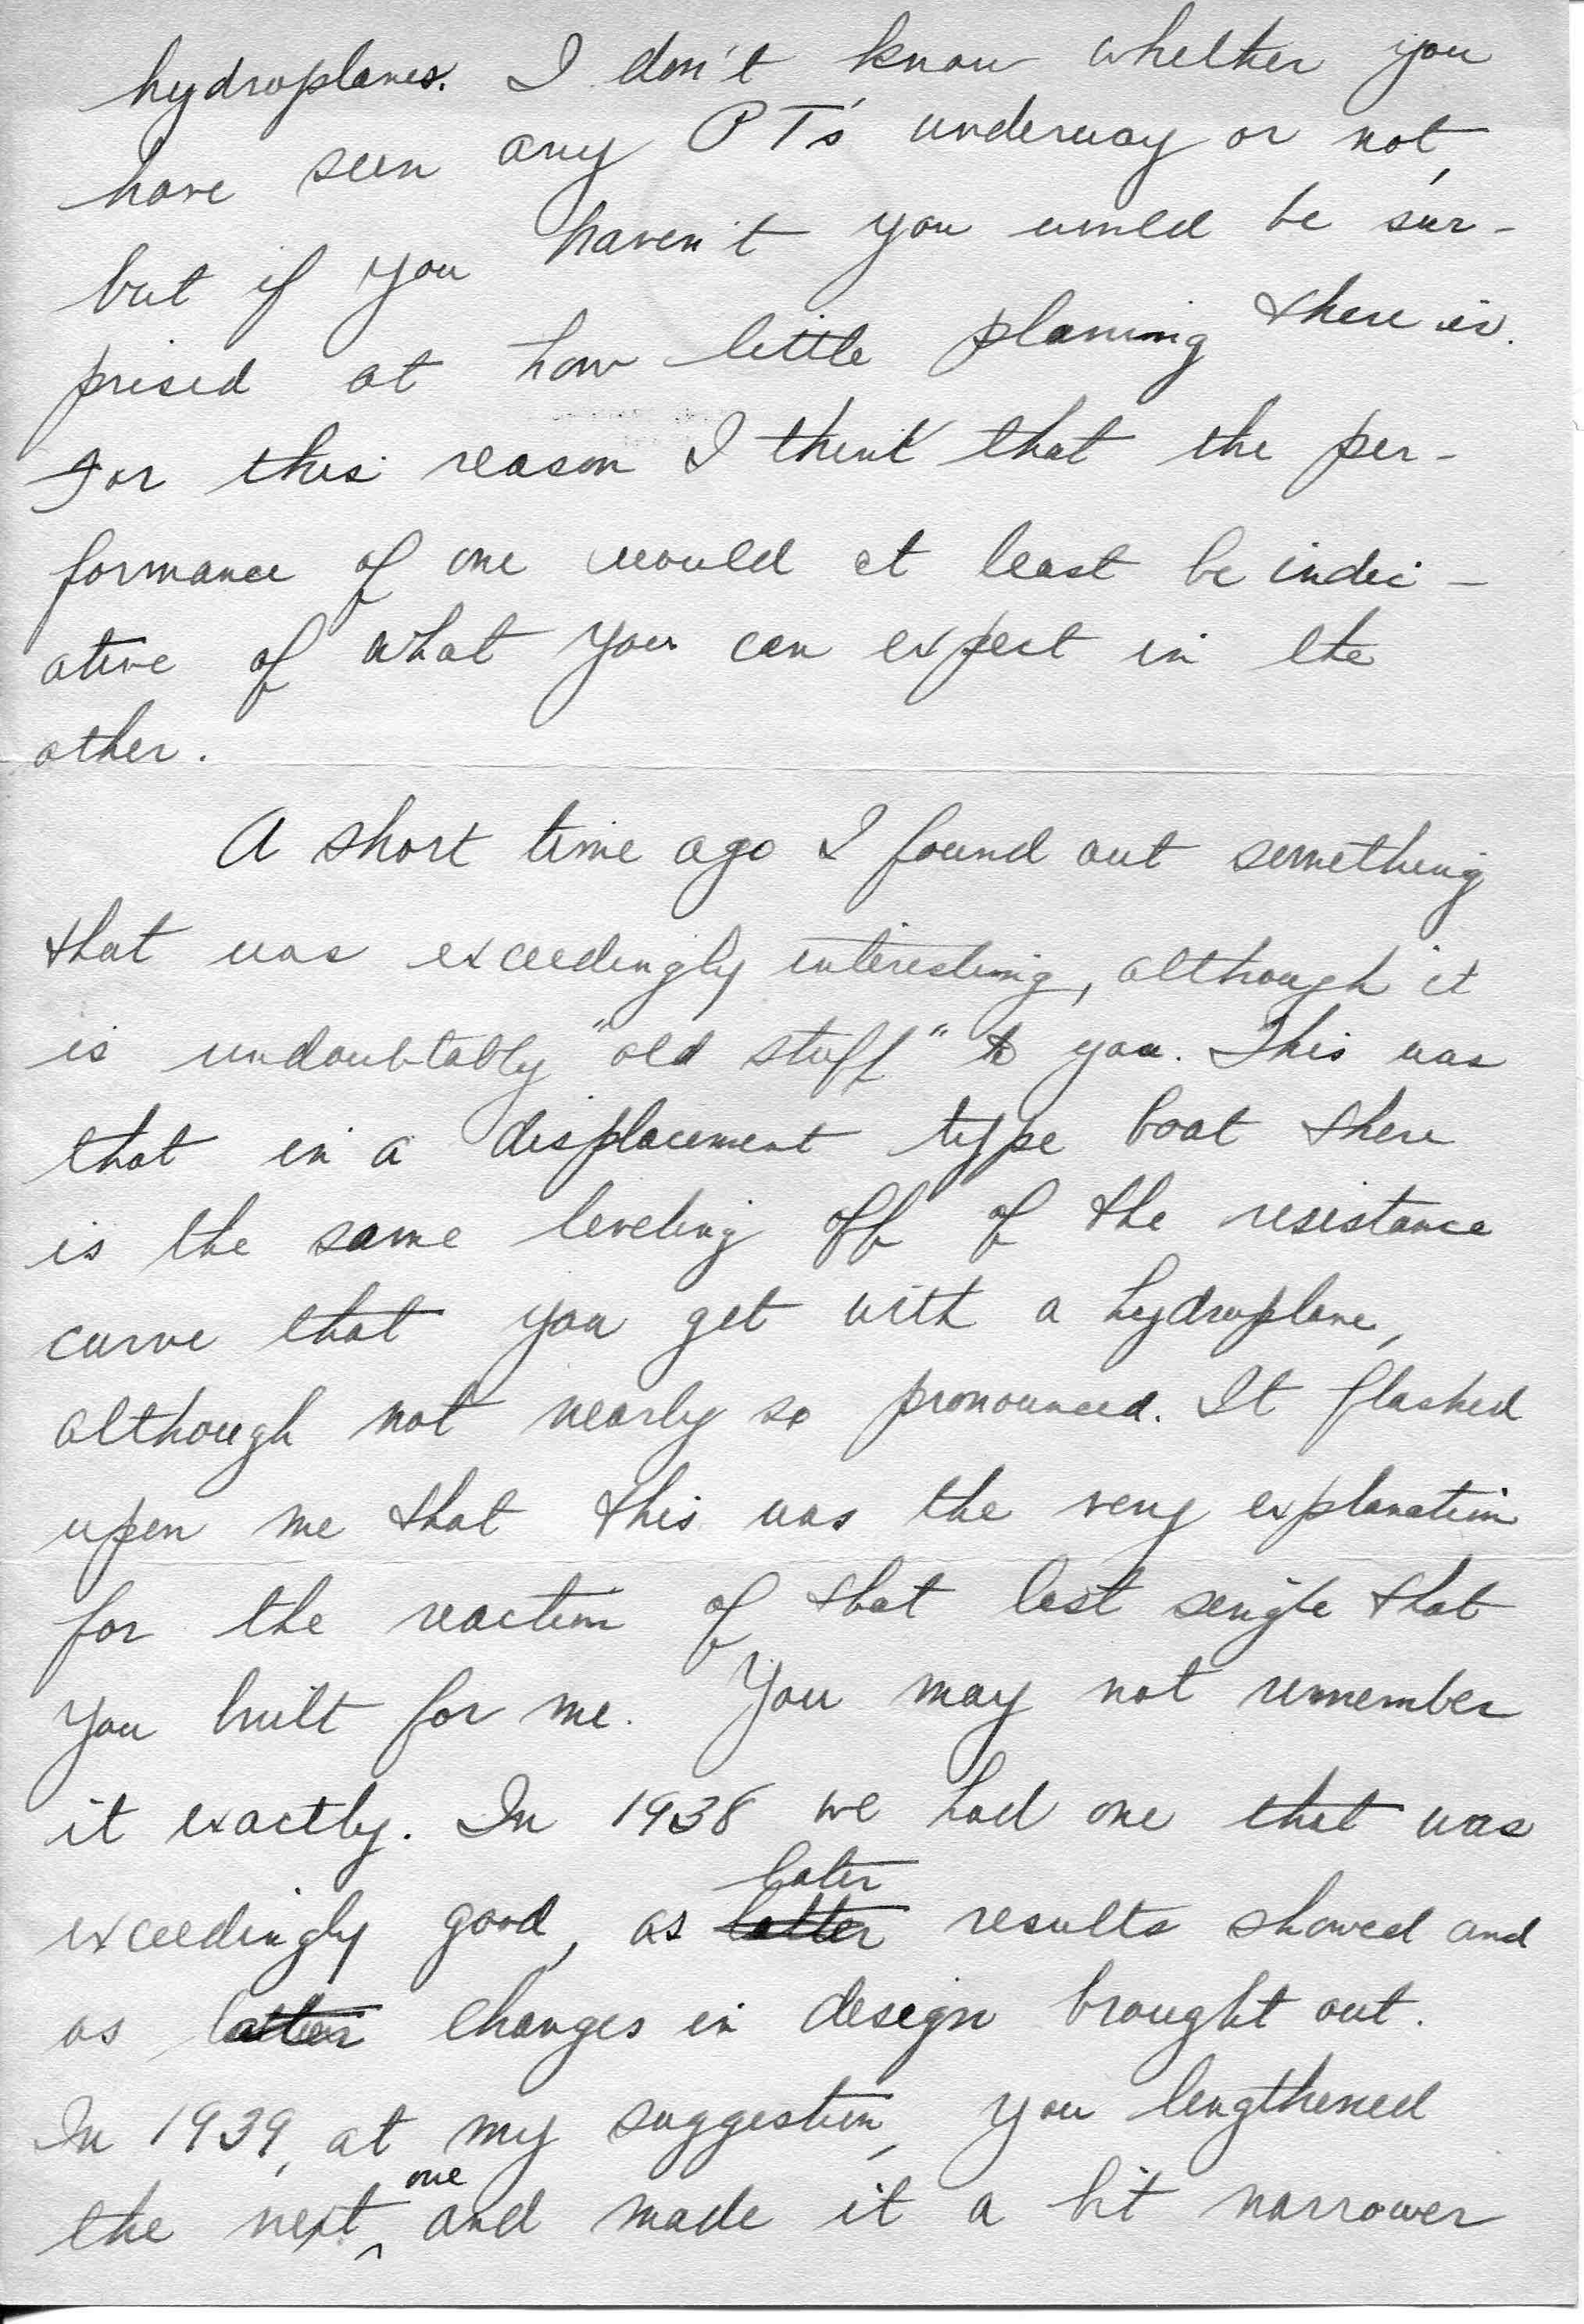 hydroplanes. I don't know whether you
have seen any PT's underway or not,
but if you haven't you would be sur-
prised at how little planing there is.
For this reason I think that the per-
formance of one would at least be indic-
ative of what you can expect in the
other.
A short time ago I found out something
that was exceedingly interesting, although it
is undoubtably "old stuff" to you. This was
that in a displacement type boat there
is the same leveling off of the resistance
curve that you get with a hydroplane,
although not nearly so pronounced. It flashed
upon me that this was the very explanation
for the reaction of that last single that
you built for me. You may not remember
it exactly. In 1938 we had one that was
later
exceedingly good, as latter results showed and
as latter changes in design brought out.
In 1939, at my suggestion, you lengthened
one
the next ^ and made it a bit narrower